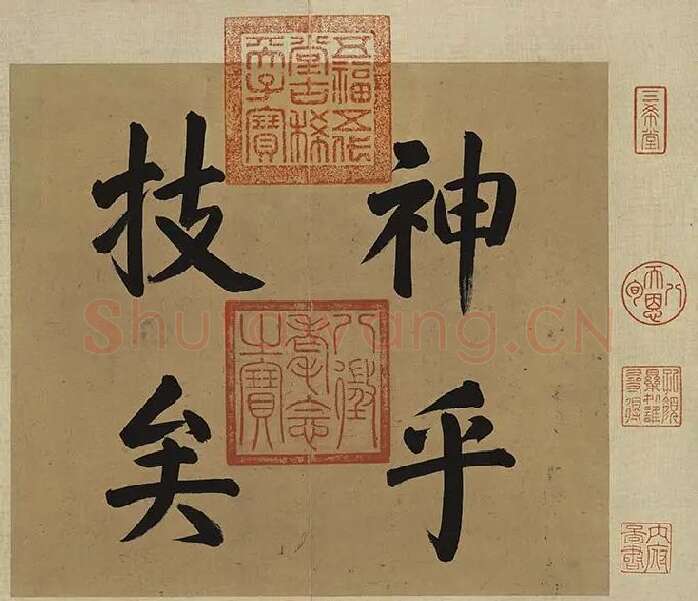 神乎
技矣
五福五代
堂古稀
天子寶
八徵
耄念
之寶
三希堂